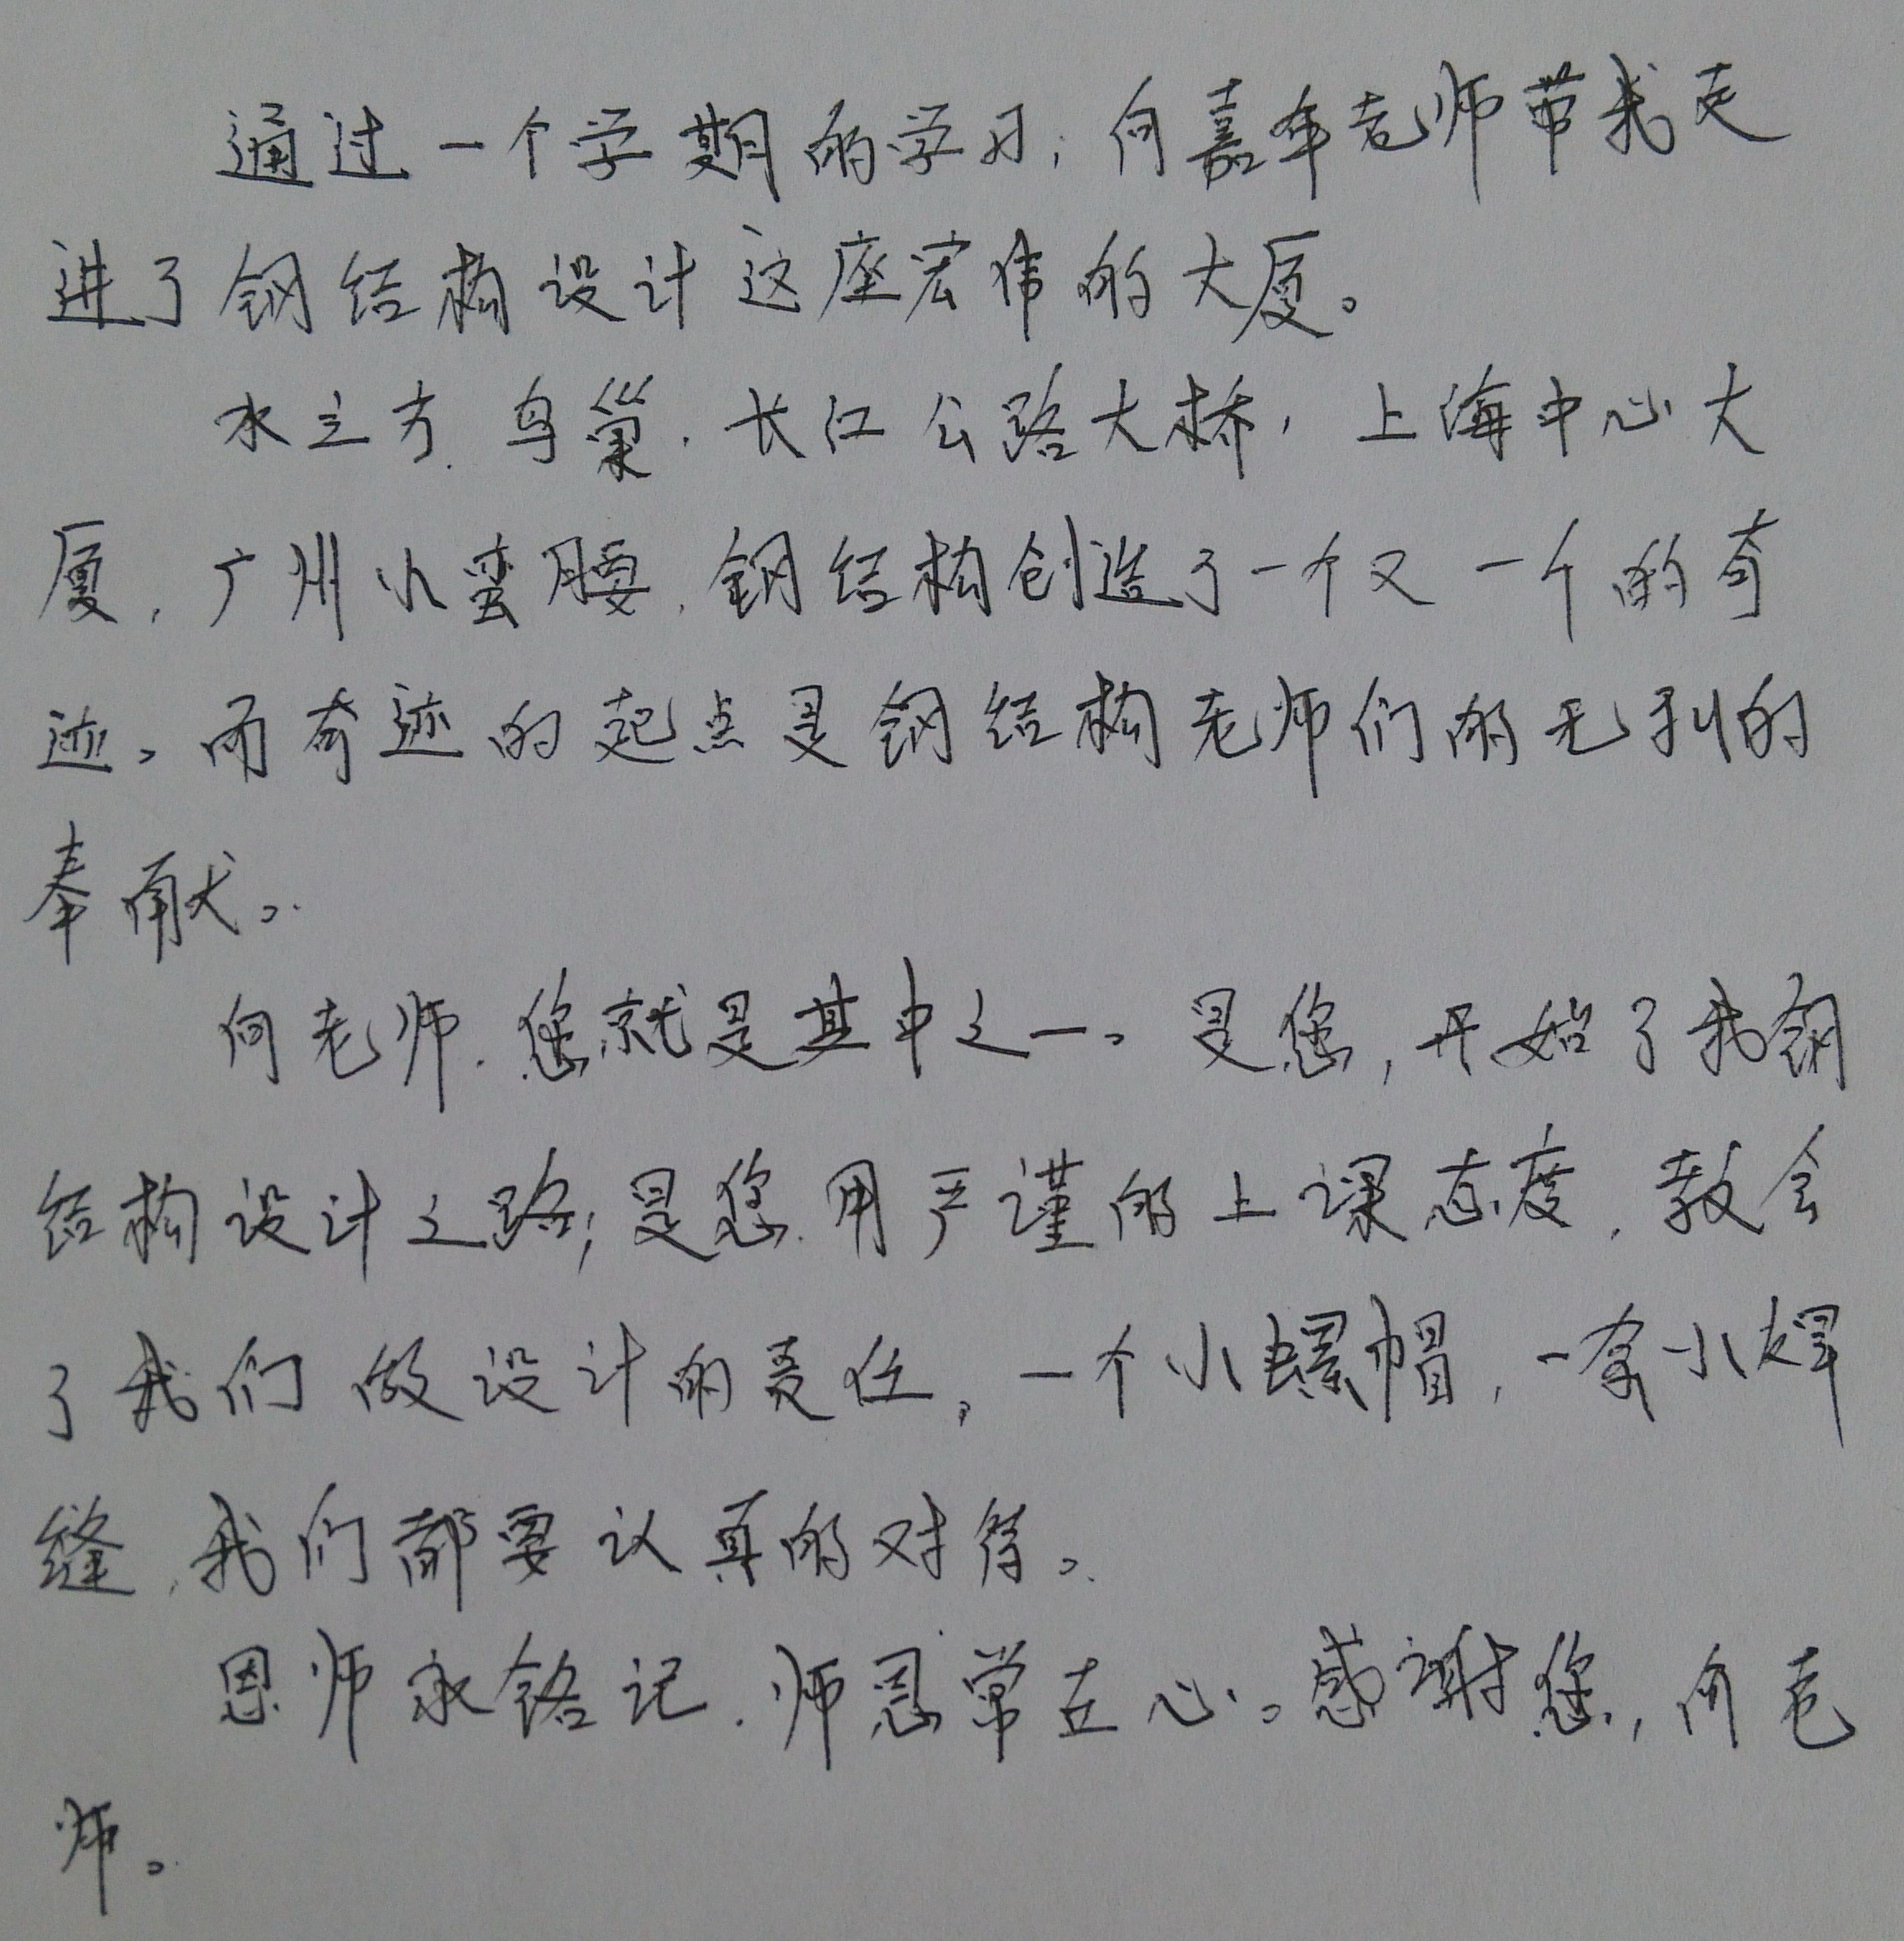 通过一个学期的学习，何嘉年老师带我走
进了钢结构设计这座宏伟的大厦。
水立方、鸟巢、长江公路大桥，上海中心大
厦，广州小蛮腰，钢结构创造了一个又一个的奇
迹。而奇迹的起点是钢结构老师们的无私的
奉献。
何老师，您就是其中之一。是您，开始了我钢
结构设计之路；是您，用严谨的上课态度，教会
了我们做设计的责任，一个小螺帽，一条小焊
缝，我们都要认真的对待。
恩师永铭记，师恩常在心。感谢您，何老
师。